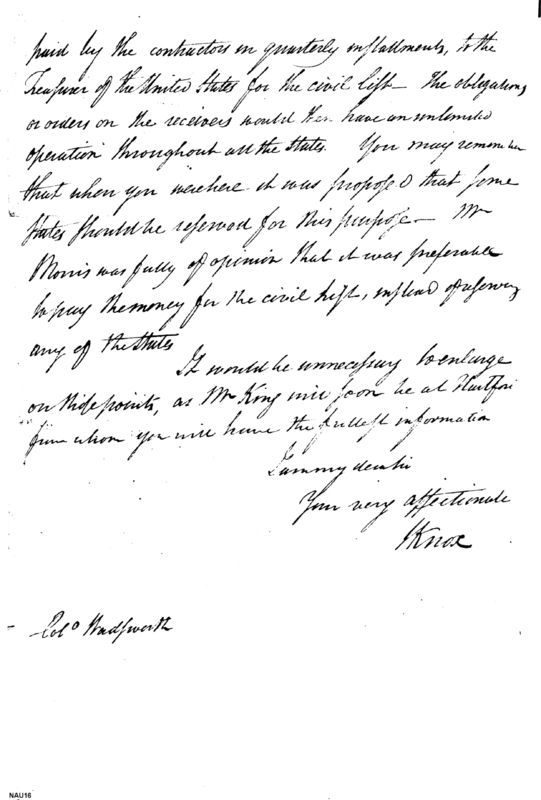 paid by the contractors in quarterly installments, to the
Treasurer of the United States for the civil list— The obligations
or orders on the receivers would then have an unlimited
operation throughout all the States. You may remember
that when you were here it was proposed that some
states should be reserved for this purpose— Mr
Morris was fully of opinion that it was preferable
to pay the money for the civil list, instead of reserving
any of the States
It would be unnecessary to enlarge
on these points, as Mr King will soon be at Hartford
from whom you will have the fullest information
I am my dear sir
Your very affectionate
HKnox
Colo Wadsworth
NAU16